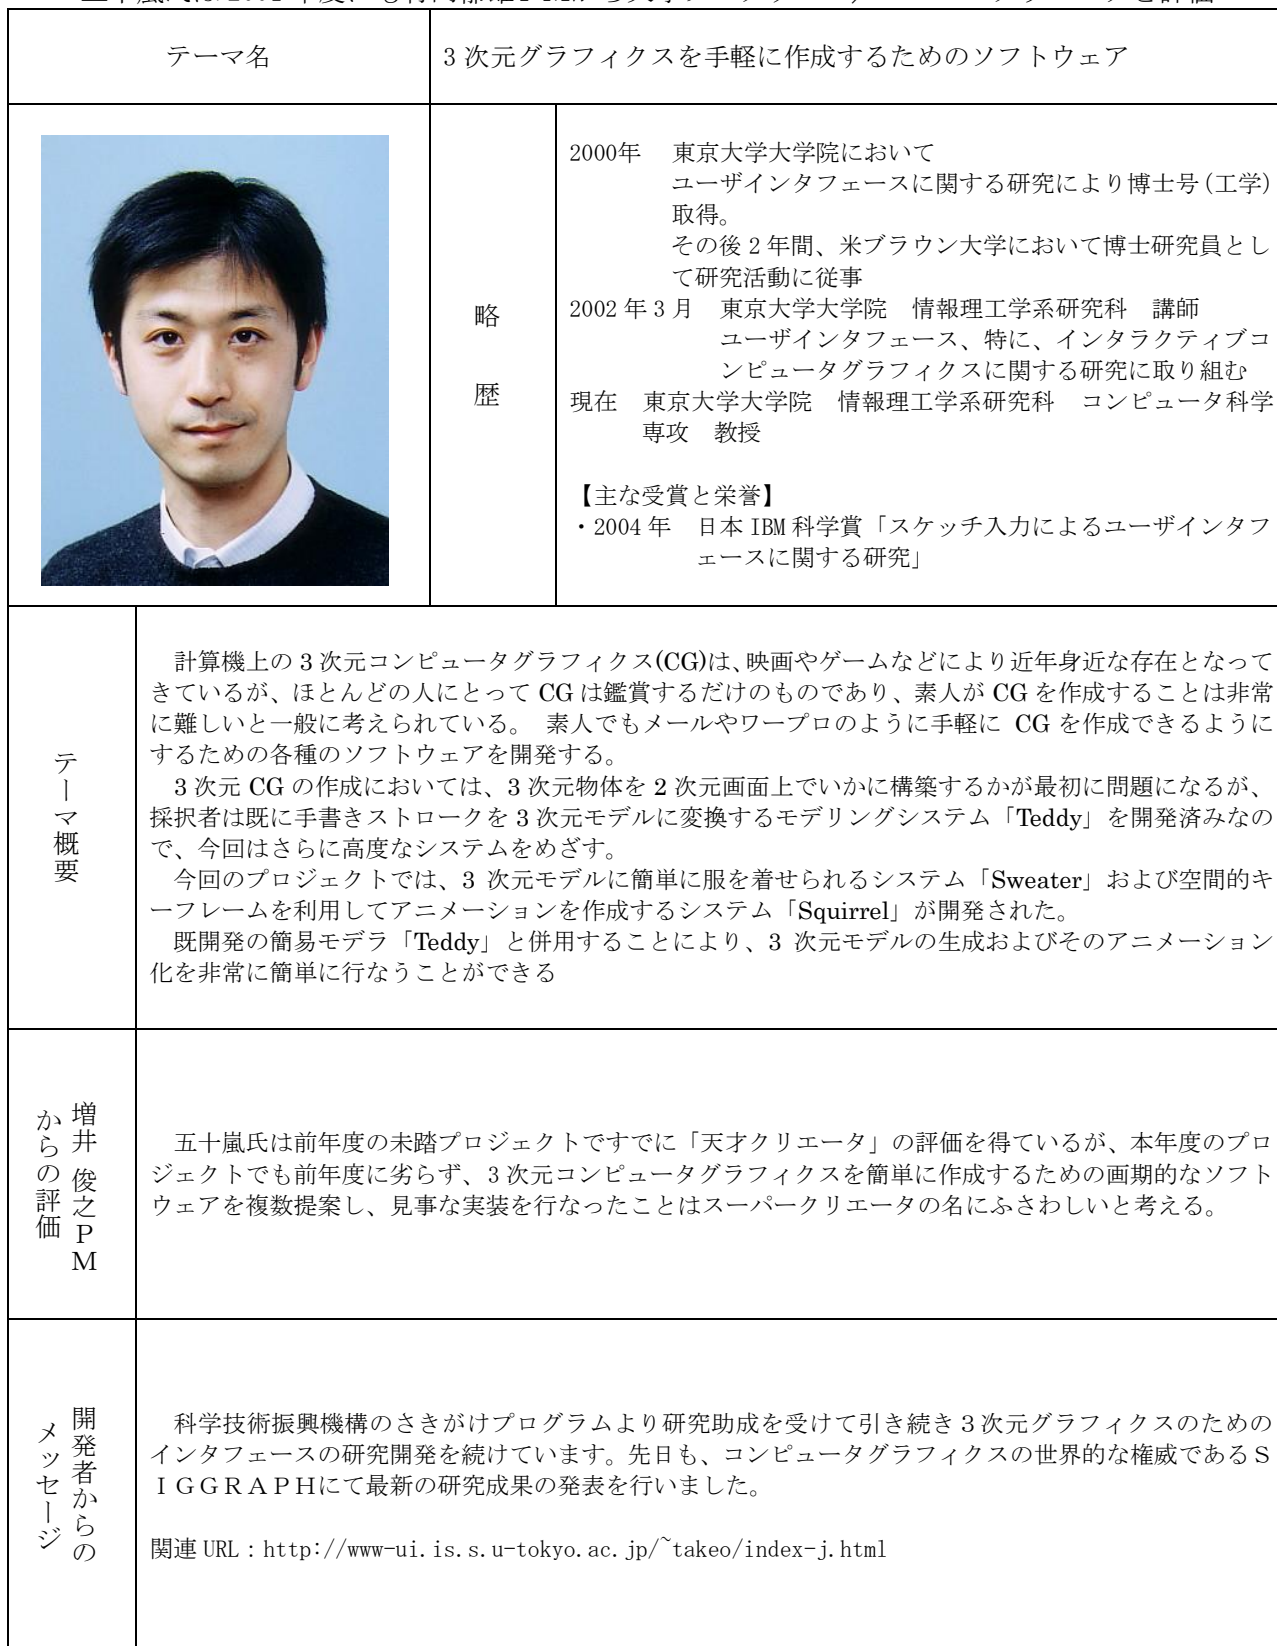 テーマ名
3次元グラフィクスを手軽に作成するためのソフトウェア
略歴
2000年　東京大学大学院において
ユーザインタフェースに関する研究により博士号(工学)
取得。
その後2年間、米ブラウン大学において博士研究員とし
て研究活動に従事
2002年3月　東京大学大学院　情報理工学系研究科　講師
ユーザインタフェース、特に、インタラクティブコ
ンピュータグラフィクスに関する研究に取り組む
現在　東京大学大学院　情報理工学系研究科　コンピュータ科学
専攻　教授
【主な受賞と栄誉】
・2004年　日本IBM科学賞「スケッチ入力によるユーザインタフ
ェースに関する研究」
テーマ概要
計算機上の3次元コンピュータグラフィクス(CG)は、映画やゲームなどにより近年身近な存在となって
きているが、ほとんどの人にとってCGは鑑賞するだけのものであり、素人がCGを作成することは非常
に難しいと一般に考えられている。 素人でもメールやワープロのように手軽に CG を作成できるように
するための各種のソフトウェアを開発する。
3次元CGの作成においては、3次元物体を2次元画面上でいかに構築するかが最初に問題になるが、
採択者は既に手書きストロークを3次元モデルに変換するモデリングシステム「Teddy」を開発済みなの
で、今回はさらに高度なシステムをめざす。
今回のプロジェクトでは、3 次元モデルに簡単に服を着せられるシステム「Sweater」および空間的キ
ーフレームを利用してアニメーションを作成するシステム「Squirrel」が開発された。
既開発の簡易モデラ「Teddy」と併用することにより、3 次元モデルの生成およびそのアニメーション
化を非常に簡単に行なうことができる
増井 俊之PM
からの評価
五十嵐氏は前年度の未踏プロジェクトですでに「天才クリエータ」の評価を得ているが、本年度のプロ
ジェクトでも前年度に劣らず、3次元コンピュータグラフィクスを簡単に作成するための画期的なソフト
ウェアを複数提案し、見事な実装を行なったことはスーパークリエータの名にふさわしいと考える。
開発者からの
メッセージ
科学技術振興機構のさきがけプログラムより研究助成を受けて引き続き３次元グラフィクスのための
インタフェースの研究開発を続けています。先日も、コンピュータグラフィクスの世界的な権威であるＳ
ＩＧＧＲＡＰＨにて最新の研究成果の発表を行いました。
関連URL：http://www-ui.is.s.u-tokyo.ac.jp/~takeo/index-j.html